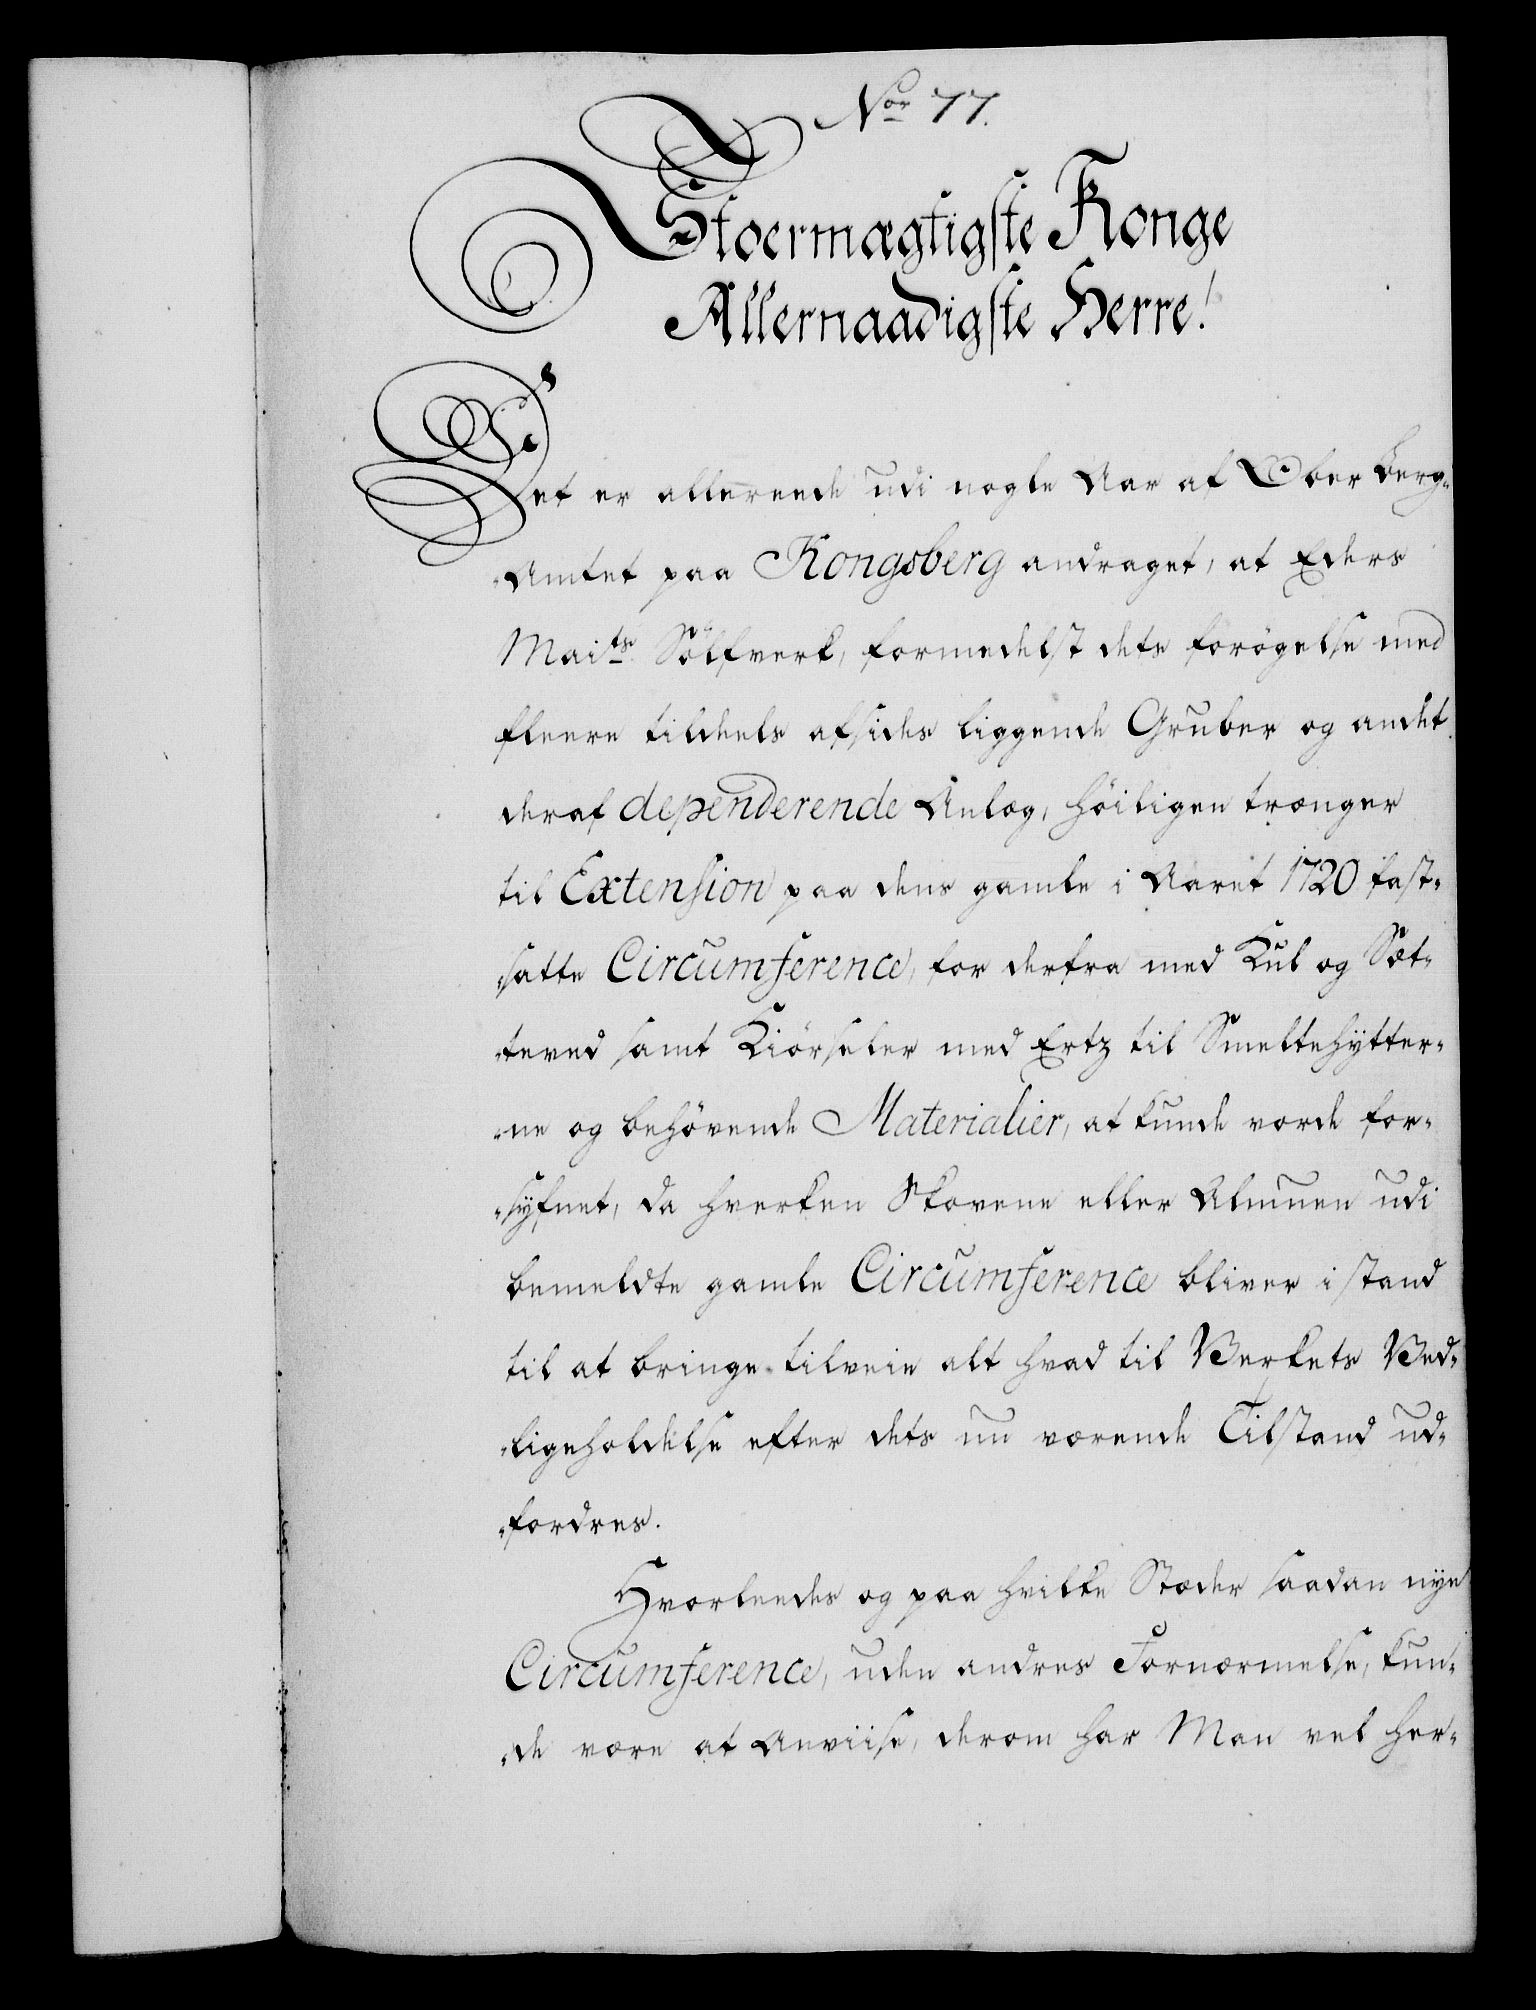 No̲r 77.
Stoermægtigste Konge
Allernaadigste Herre!
Det er allereede udi nogle Aar af Ober Berg-
-Amtet paa Kongsberg andraget, at Eders
Maits. Sölfverk, formedelst dets forögelse med
fleere tildeels afsides liggende Gruber og andet
deraf dependerende Anlæg, höiligen trænger
til Extension paa dens gamle i Aaret 1720 fast-
-satte Circumference, for derfra med Kul og Sæt-
-teved samt Kiörseler med Ertz til Smeltehytter-
-ne og behövende Materialier, at kunde vorde for-
-syfnet, da hverken Skovene eller Almuen udi
bemeldte gamle Circumference bliver i stand
til at bringe tilveie alt hvad til Verkets Ved-
-ligeholdelse efter dets nu værende Tilstand ud-
-fordres.
Hvorleedes og paa hvilke Stæder saadan nye
Circumference, uden andres Fornærmelse, kun-
-de være at Anviise, derom har Man vel her-